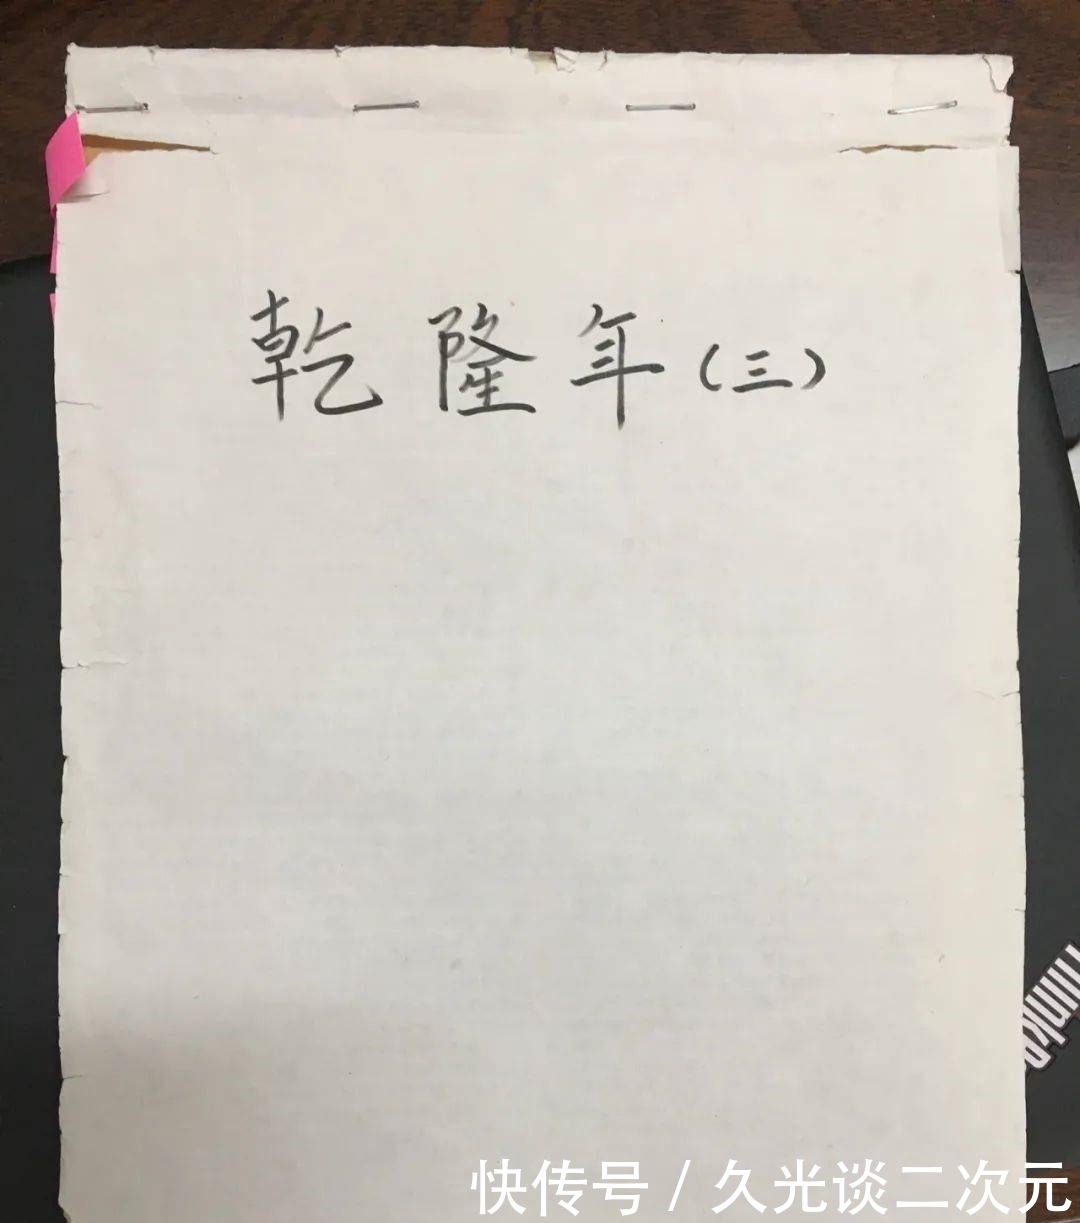 乾隆年(三)
Think
快传号 / 久光谈二次元